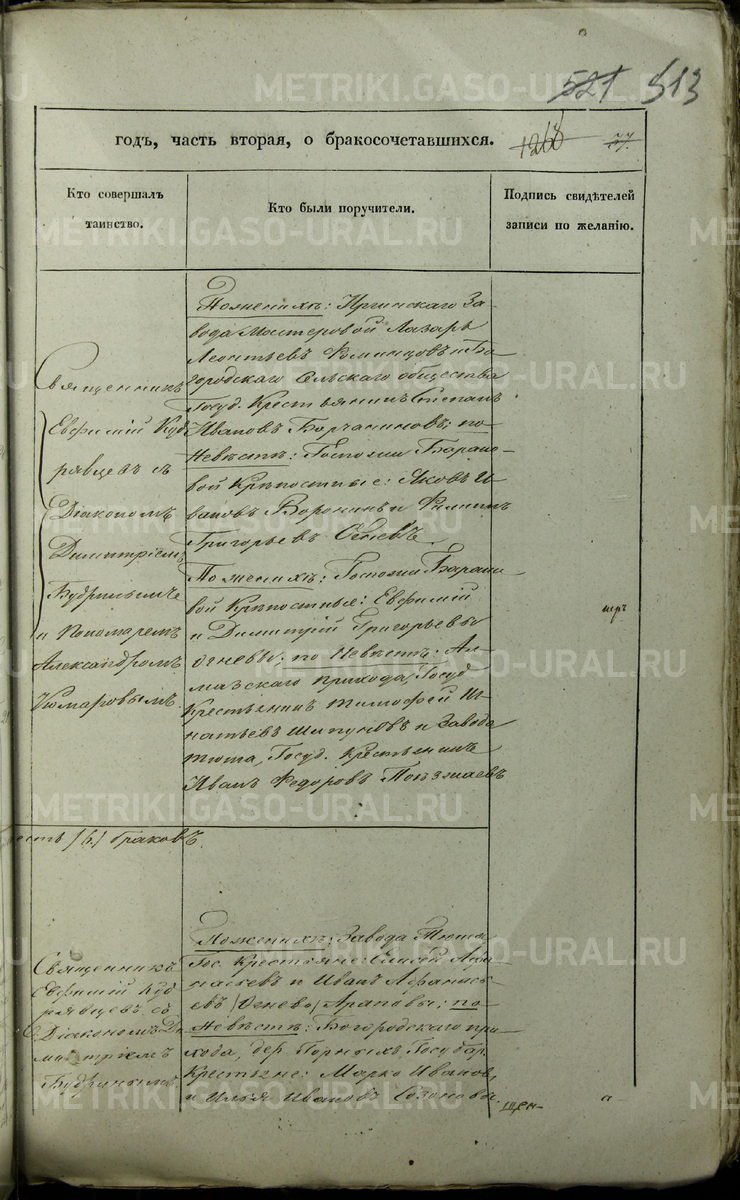 METRIKI.GASO-URAL.RU
521 513
годъ, часть вторая, о бракосочетавшихся.
1268 37.
Кто совершалъ
таинство.
Кто были поручители.
Подпись свидѣтелей
записи по желанію.
Священникъ
Евфимій Куд
рявцевъ съ
Діакономъ
Димитріемъ
Будринымъ
и Пономаремъ
Александромъ
Комаровымъ.
По женихѣ: Иргинскаго За-
вода Мастеровой Лазарь
Леонтьевъ и Бо-
городскаго Сельскаго общества
Госуд. Крестьянинъ Степанъ
Ивановъ по
Невѣстѣ: Госпожи Бараше-
вой Крѣпостные: Яковъ И-
вановъ Воронинъ и Филипъ
Григорьевъ Огневъ.
По женихѣ: Госпожи Бараше-
вой Крѣпостные: Евфимій
и Димитрій Григорьевы
Огневы; по Невѣстѣ: Ал-
мазскаго прихода, Госуд.
Крестьянинъ Тимофей Иг-
натьевъ Шипуновъ и Завода
Тюша, Госуд. Крестьянинъ
Иванъ Федоровъ
шръ
есть (6.) браковъ.
Священникъ
Евфимій Куд
рявцевъ съ
Діакономъ Ди
митріемъ
Будринымъ
По женихѣ: Завода Тюша
Гос. Крестьяне:
и Иванъ Афанась-
евъ (Огневы) Араповы; по
Невѣстѣ: Богородскаго при-
хода, дер. Горныхъ, Государ.
Крестьяне: Марко Ивановъ
и Илья Ивановъ Созоновы.